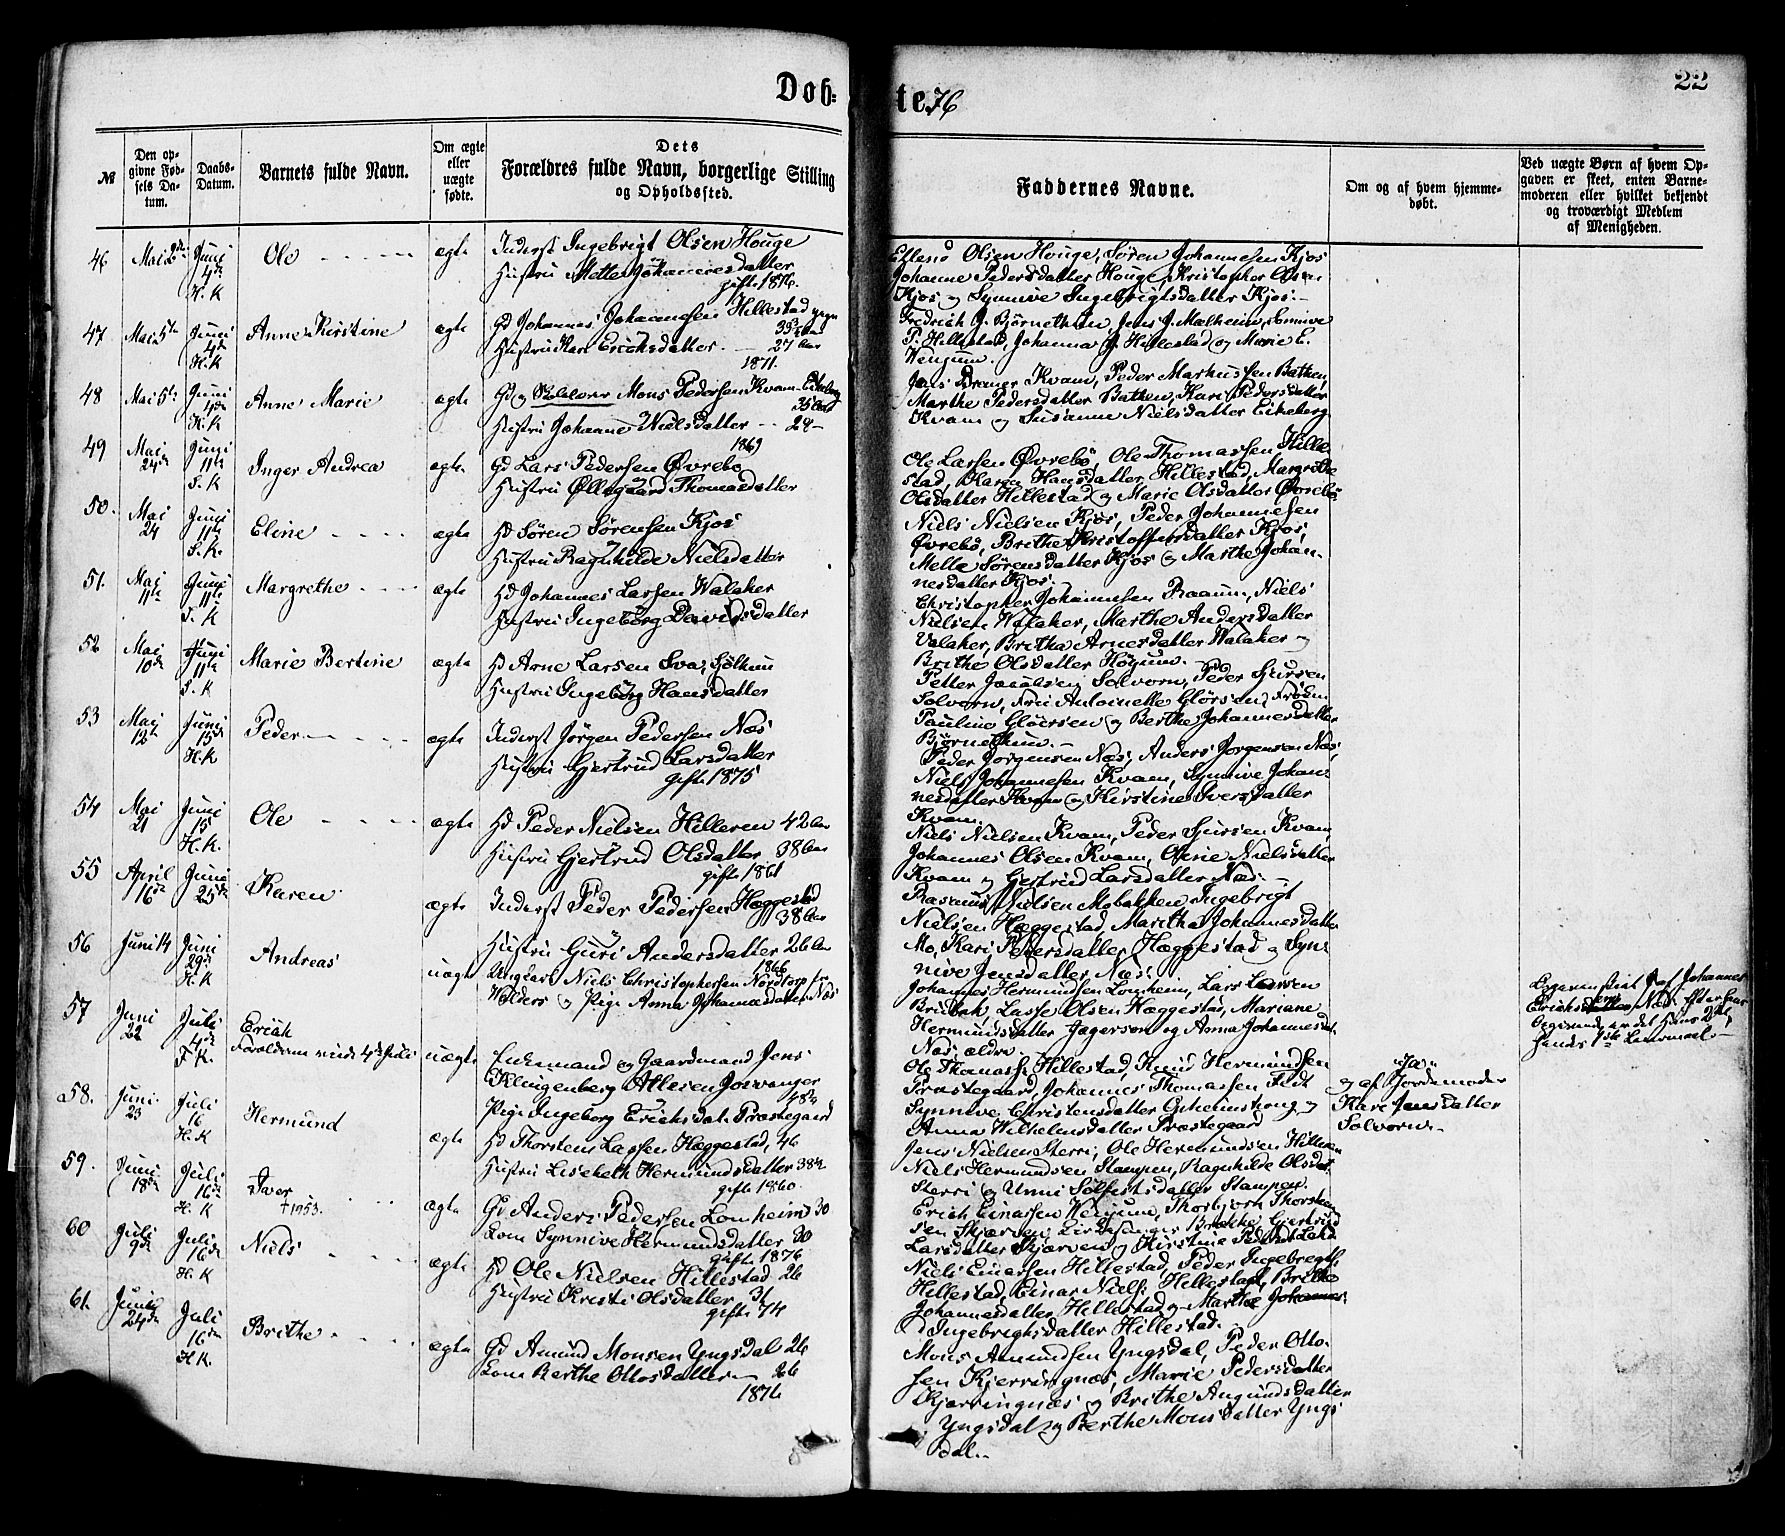 Døb- te 76
22
№
Den op-
givne Fød-
sels Da-
tum.
Daabs-
Datum.
Barnets fulde Navn.
Om ægte
eller
uægte
fødte.
Dets
Forældres fulde Navn, borgerlige Stilling
og Opholdssted.
Faddernes Navne.
Om og af hvem hjemme-
døbt.
Ved uægte Børn af hvem Op-
gaven er skeet, enten Barne-
moderen eller hvilket bekjendt
og troværdigt Medlem
af Menigheden.
46 Mai Juni 4de H. K Ole ægte
Inderst Ingebrigt Olsen Houge
Hustru Mette Johannesdatter
gifte 1876.
Olsen Houge, Søren Johannesen Kjos
Johanne Pedersdatter Houge, Kristopher Olsen
Kjos og Synnive Ingebrigtsdatter Kjos.
47 Mai 5te Juni 4de H. K Anne Kirstine ægte
Gd Johannes Johannesen Hillestad yngre
35 Aar
Hustru Kari Erichsdatter. 27 Aar
1871.
Fredrich J. Bjørnethun, Jens J. Molheim,
P. Hillestad, Johanna J. Hillestad og Marie E.
Wengum.
48 Mai 5te Juni 4de H. K Anne Marie ægte
Gd og Mons Pedersen Kvam Eikeberg
35 Aar
Hustru Johanne Nielsdatter 29
1869
Jens Kvam, Peder Markussen Bathen,
Marthe Pedersdatter Bathen, Kari Pedersdatter
Kvam og Susanne Nielsdatter Eikeberg
49 Mai 24de Juni 11te S. K Inger Andrea ægte
Gd Lars Pedersen Øvrebø
Hustru Øllegaard Thomasdatter
Ole Larsen Øvrebø, Ole Thomassen Hille-
stad, Karen Hansdatter Hillestad, Margrithe
Olsdatter Hillestad og Marie Olsdatter Øvrebø
50. Mai 24 Juni 11te S. K. Eline ægte
Hd Søren Sørensen Kjos
Hustru Ragnhilde Nielsdatter
Niels Nielsen Kjos, Peder Johannesen
Øvrebø, Brithe Kristoffersdatter Kjos,
Mette Sørensdatter Kjos og Marthe Johan-
nesdatter Kjos.
51. Mai 11te Juni 11te S. K Margrethe ægte
Hd Johannes Larsen Walaker
Hustru Ingeborg Davidsdatter
Christopher Johannesen Raaum, Niels
Nielsen Walaker, Marthe Andersdatter
Valaker, Britha Arnesdatter Walaker og
Brithe Olsdatter Høgum.
52 Mai 10de Juni 11te S. K Marie Bertine ægte
Hd Arne Larsen Sva,
Hustru Ingeborg Hansdatter
Petter Jacobsen Solvorn, Peder Sjursen
Solvorn, Fru Antoinette Gløersen, Frøken
Pauline Gløersen og Berthe Johannesdatter
Bjørnethun.
53 Mai 12te Juni 15de H. K Peder ægte
Inderst Jørgen Pedersen Næs
Hustru Gjertrud Larsdatter
gifte 1875
Peder Jørgensen Næs, Anders Jørgensen Næs,
Niels Johannesen Kvam, Synnive Johan-
nesdatter Kvam og Kirstine Iversdatter
Kvam.
54 Mai 21 Juni 15 H. K. Ole ægte
Hd Peder Nielsen Hilleren 42 Aar
Hustru Gjertrud Olsdatter 38 Aar
gifte 1861
Niels Nielsen Kvam, Peder Sjursen Kvam,
Johannes Olsen Kvam, Oline Nielsdatter
Kvam og Gjertrud Larsdatter Næs.
55 April 16de Juni 25de Karen ægte
Inderst Peder Pedersen Heggestad
38 Aar
Hustru Guri Andersdatter 26 Aar
1866
Rasmus Nielsen Mobakken, Ingebrigt
Nielsen Hæggestad, Maritha Johannesdatter
Mo, Kari Pedersdatter Hæggestad og Syn-
nive Jensdatter Næs.
56 Juni 14 Juni 29de H. K Andreas uægte
Ungkarl Niels Christophersen Nordtorp fra
Walders og Pige Anna Johannesdatter Næs
Johannes Hermundsen Lomheim, Lars Larsen
Lasse Olsen Hæggestad, Mariane
Hermundsdatter Jagersen og Anna Johannesdat.
Næs, ældre.
Opgaven skeet af Johannes
Næs.
57 Juni 22 Juli 4de F. K. Erich
Forældrene viede 4de Juli uægte
Enkemand og Gaardmand Jens
Klingenberg Allesen Josvanger
48
Pige Ingeborg Erichsdat. Præstegaard
Ole Thomass. Hillestad, Knud Hermundsen
Præstegaard, Johannes Thomassen Feet
Synnive Christensdatter og
Anna Wilhelmsdatter Præstegaard
Ja
og af Jordemoder
Kari Jensdatter
Solvorn.
58. Juni 23 Juli 16 H. K Hermund ægte
Hd Thorstens Lassen Hæggestad, 46
Hustru Lisebeth Hermundsdatter 38
gifte 1860.
Jens Nielsen Sterri, Ole Hermundsen Hilleren
Niels Hermundsen Stampen, Ragnhilde Olsdat.
Sterri og Unni Solfestsdatter Stampen.
59. Juni 18de Juli 16de H. K Iver
†1953. ægte
Gd Anders Pedersen Lomheim 30
Kone Synnive Hermundsdatter 30
gifte 1876
Erich Einarsen Wengum, Thorbjørn Thorsten-
sen Skjerven, Brække, Gjertrud
Larsdatter Skjerven og Kirstine
60 Juli 9de Juli 16de H. K Niels ægte
Hd Ole Nielsen Hillestad 26
Hustru Kristi Olsdatter 31
gifte 74
Niels Einarsen Hillestad, Peder Ingebregts.
Hillestad, Einar Niels. Hillestad, Brithe
Johannesdatter Hillestad og Marthe Johannes-
d Ingebrigtsdatter Hillestad.
61. Juni 24de Juli 16de H K. Brithe ægte
Gd Amund Monsen Yngsdal 26
Kone Berthe Ottosdatter 26
1876
Mons Amundsen Yngsdal, Peder Otto-
sen Kjerringnæs, Marie Pedersdatter
Kjærringnæs og Brithe Amundsdatter
Yngsdal og Berthe Monsdatter Yngs-
dal.